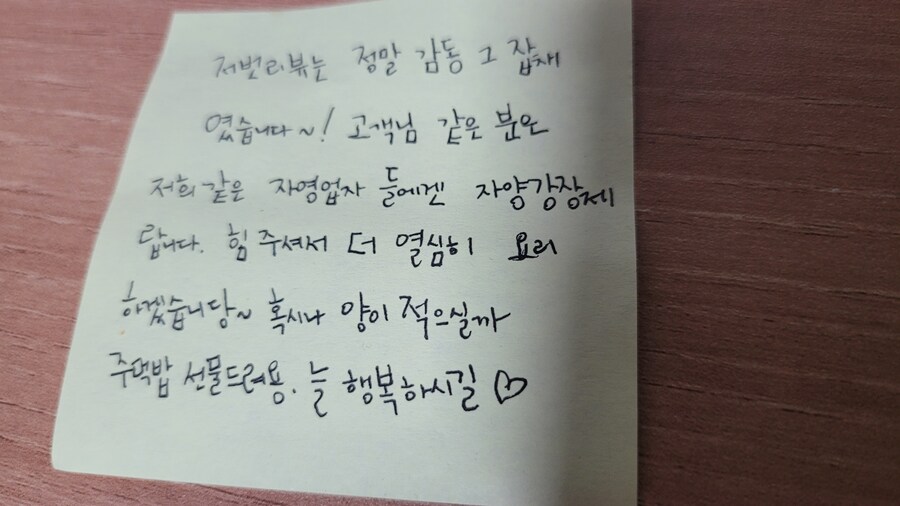 저번리뷰는 정말 감동 그 잡채
였습니다~! 고객님 같은 분은
저희 같은 자영업자 들에겐 자양강장제
랍니다. 힘 주셔서 더 열심히 요리
하겠습니당~ 혹시나 양이 적으실까
주먹밥 선물드려용. 늘 행복하시길 ♡